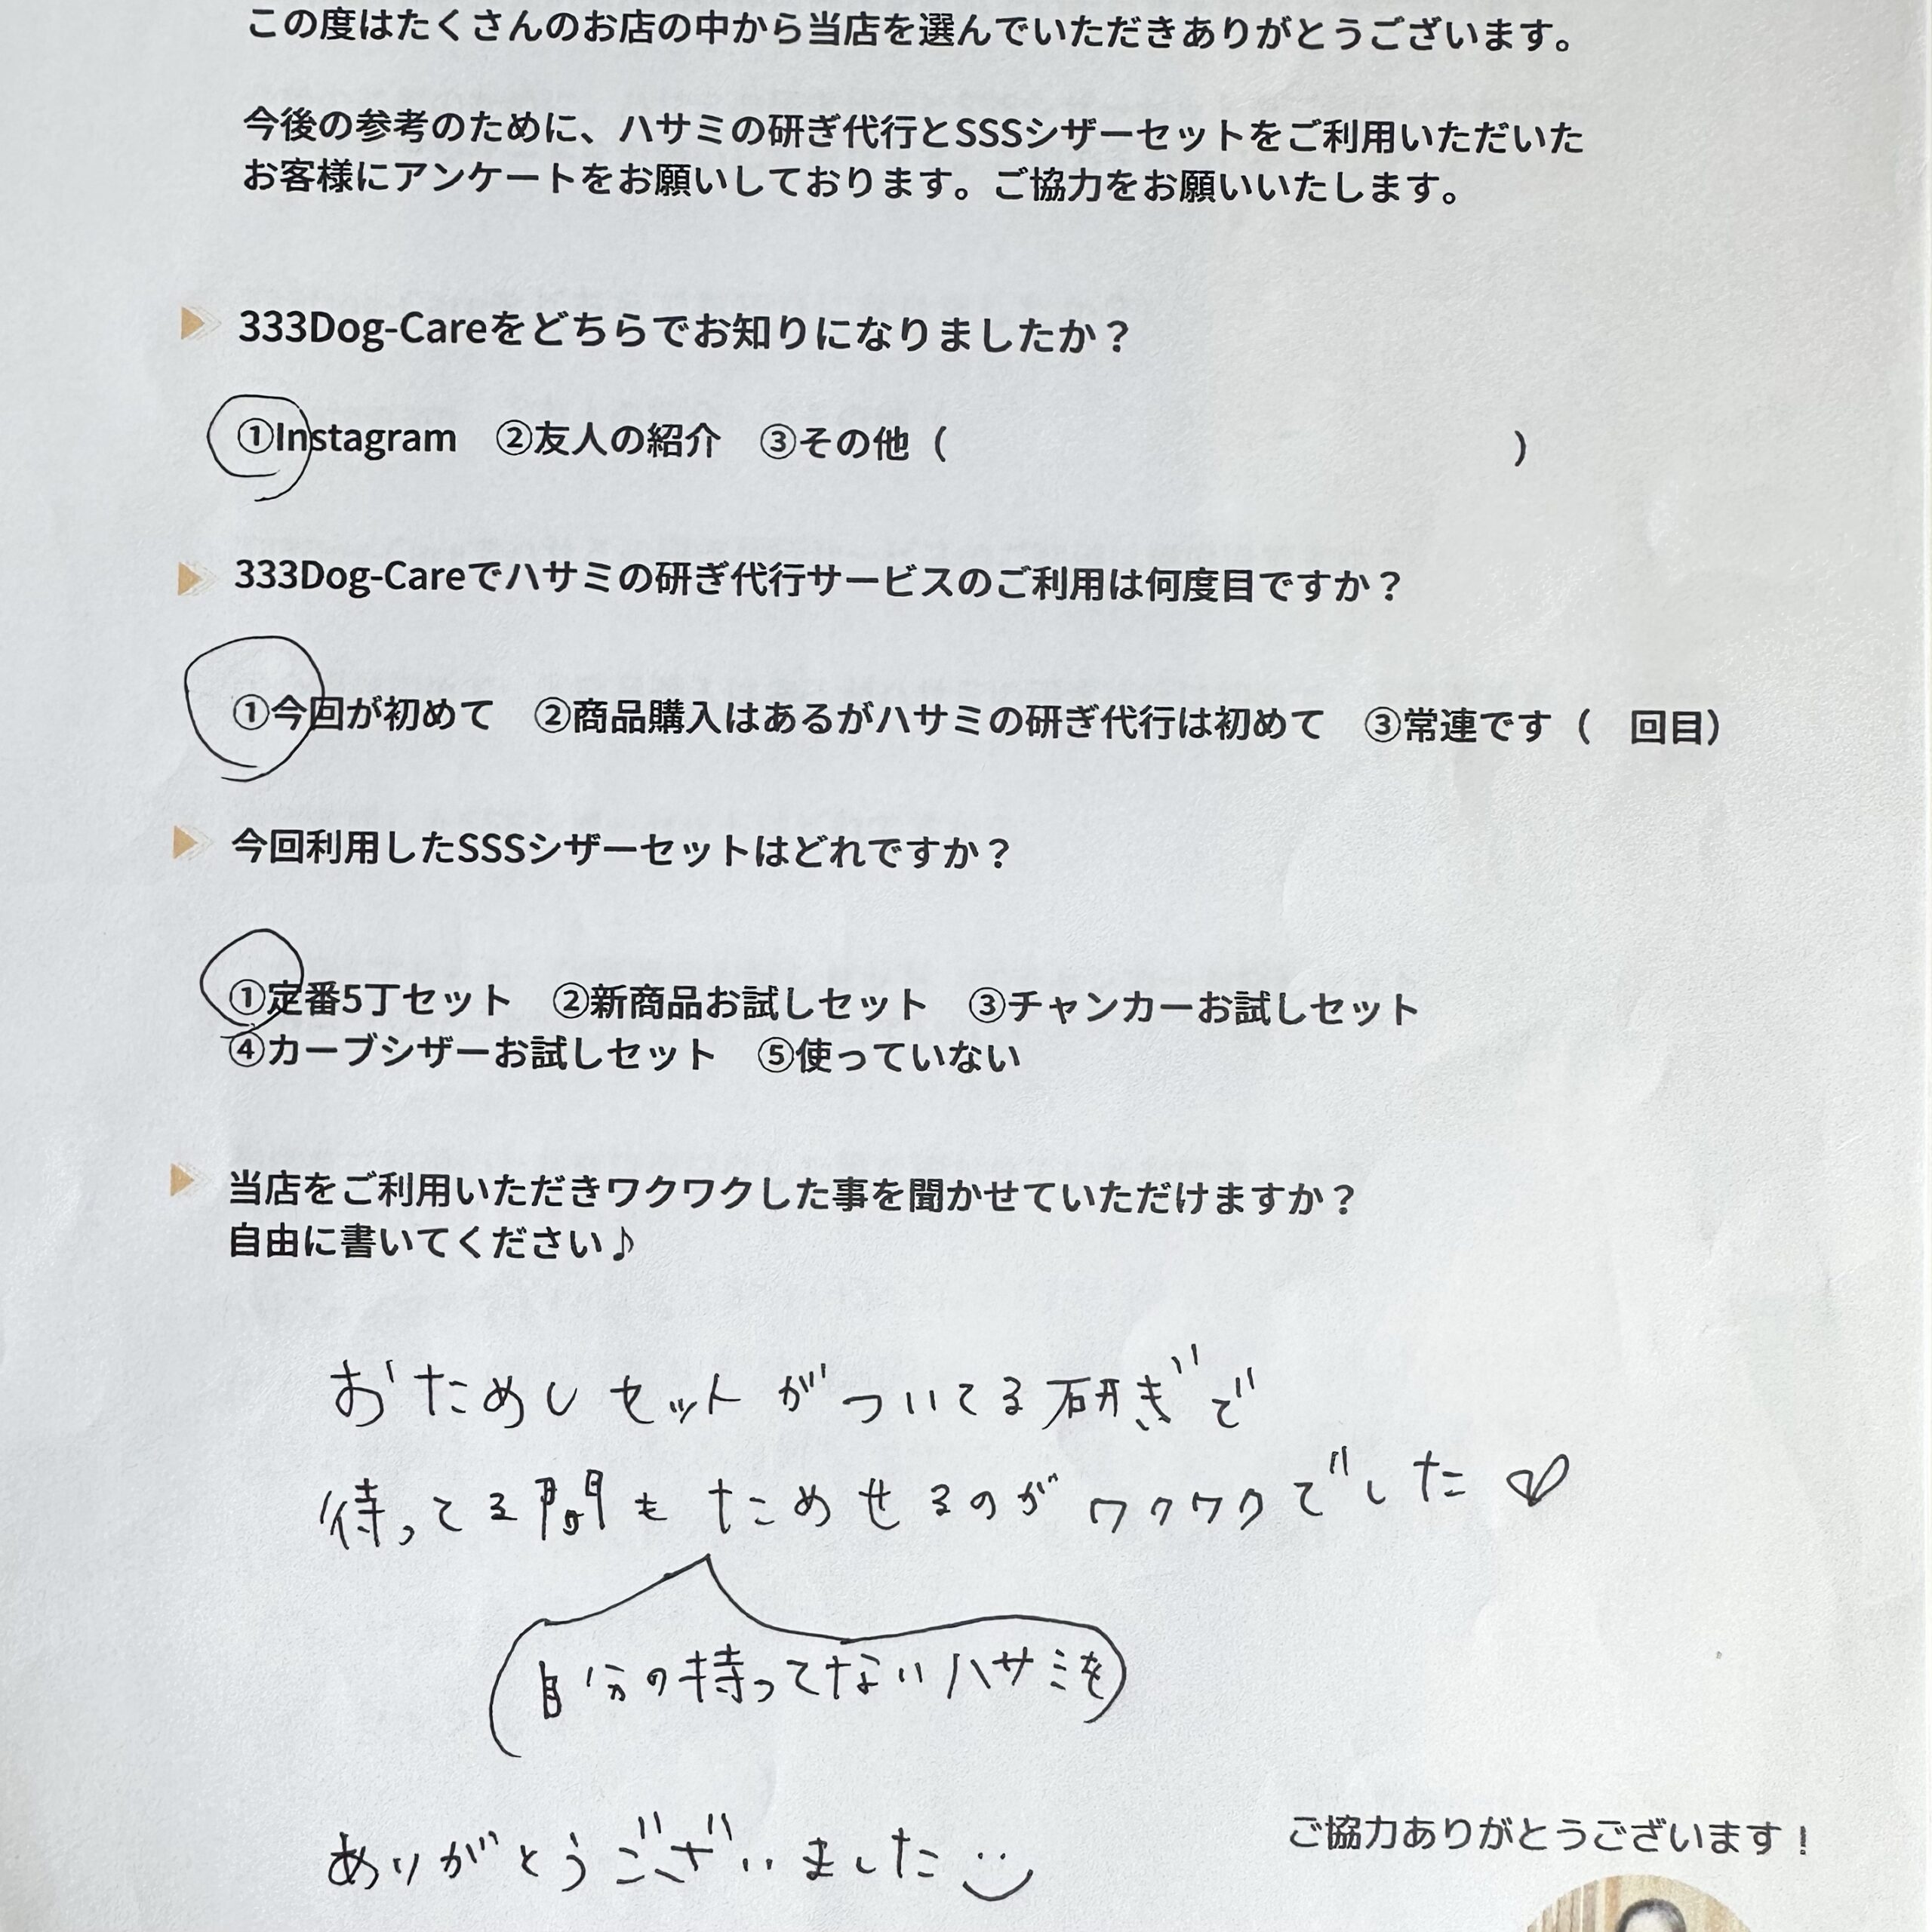 この度はたくさんのお店の中から当店を選んでいただきありがとうございます。
今後の参考のために、ハサミの研ぎ代行とSSSシザーセットをご利用いただいた
お客様にアンケートをお願いしております。ご協力をお願いいたします。
333Dog-Careをどちらでお知りになりましたか？
①Instagram ②友人の紹介 ③その他（ ）
333Dog-Careでハサミの研ぎ代行サービスのご利用は何度目ですか？
①今回が初めて ②商品購入はあるがハサミの研ぎ代行は初めて ③常連です（ 回目）
今回利用したSSSシザーセットはどれですか？
①定番5丁セット ②新商品お試しセット ③チャンカーお試しセット
④カーブシザーお試しセット ⑤使っていない
当店をご利用いただきワクワクした事を聞かせていただけますか？
自由に書いてください♪
おためしセットがついてる研ぎで
待ってる間もためせるのがワクワクでした♡
(自分の持ってないハサミを)
ありがとうございました
ご協力ありがとうございます！